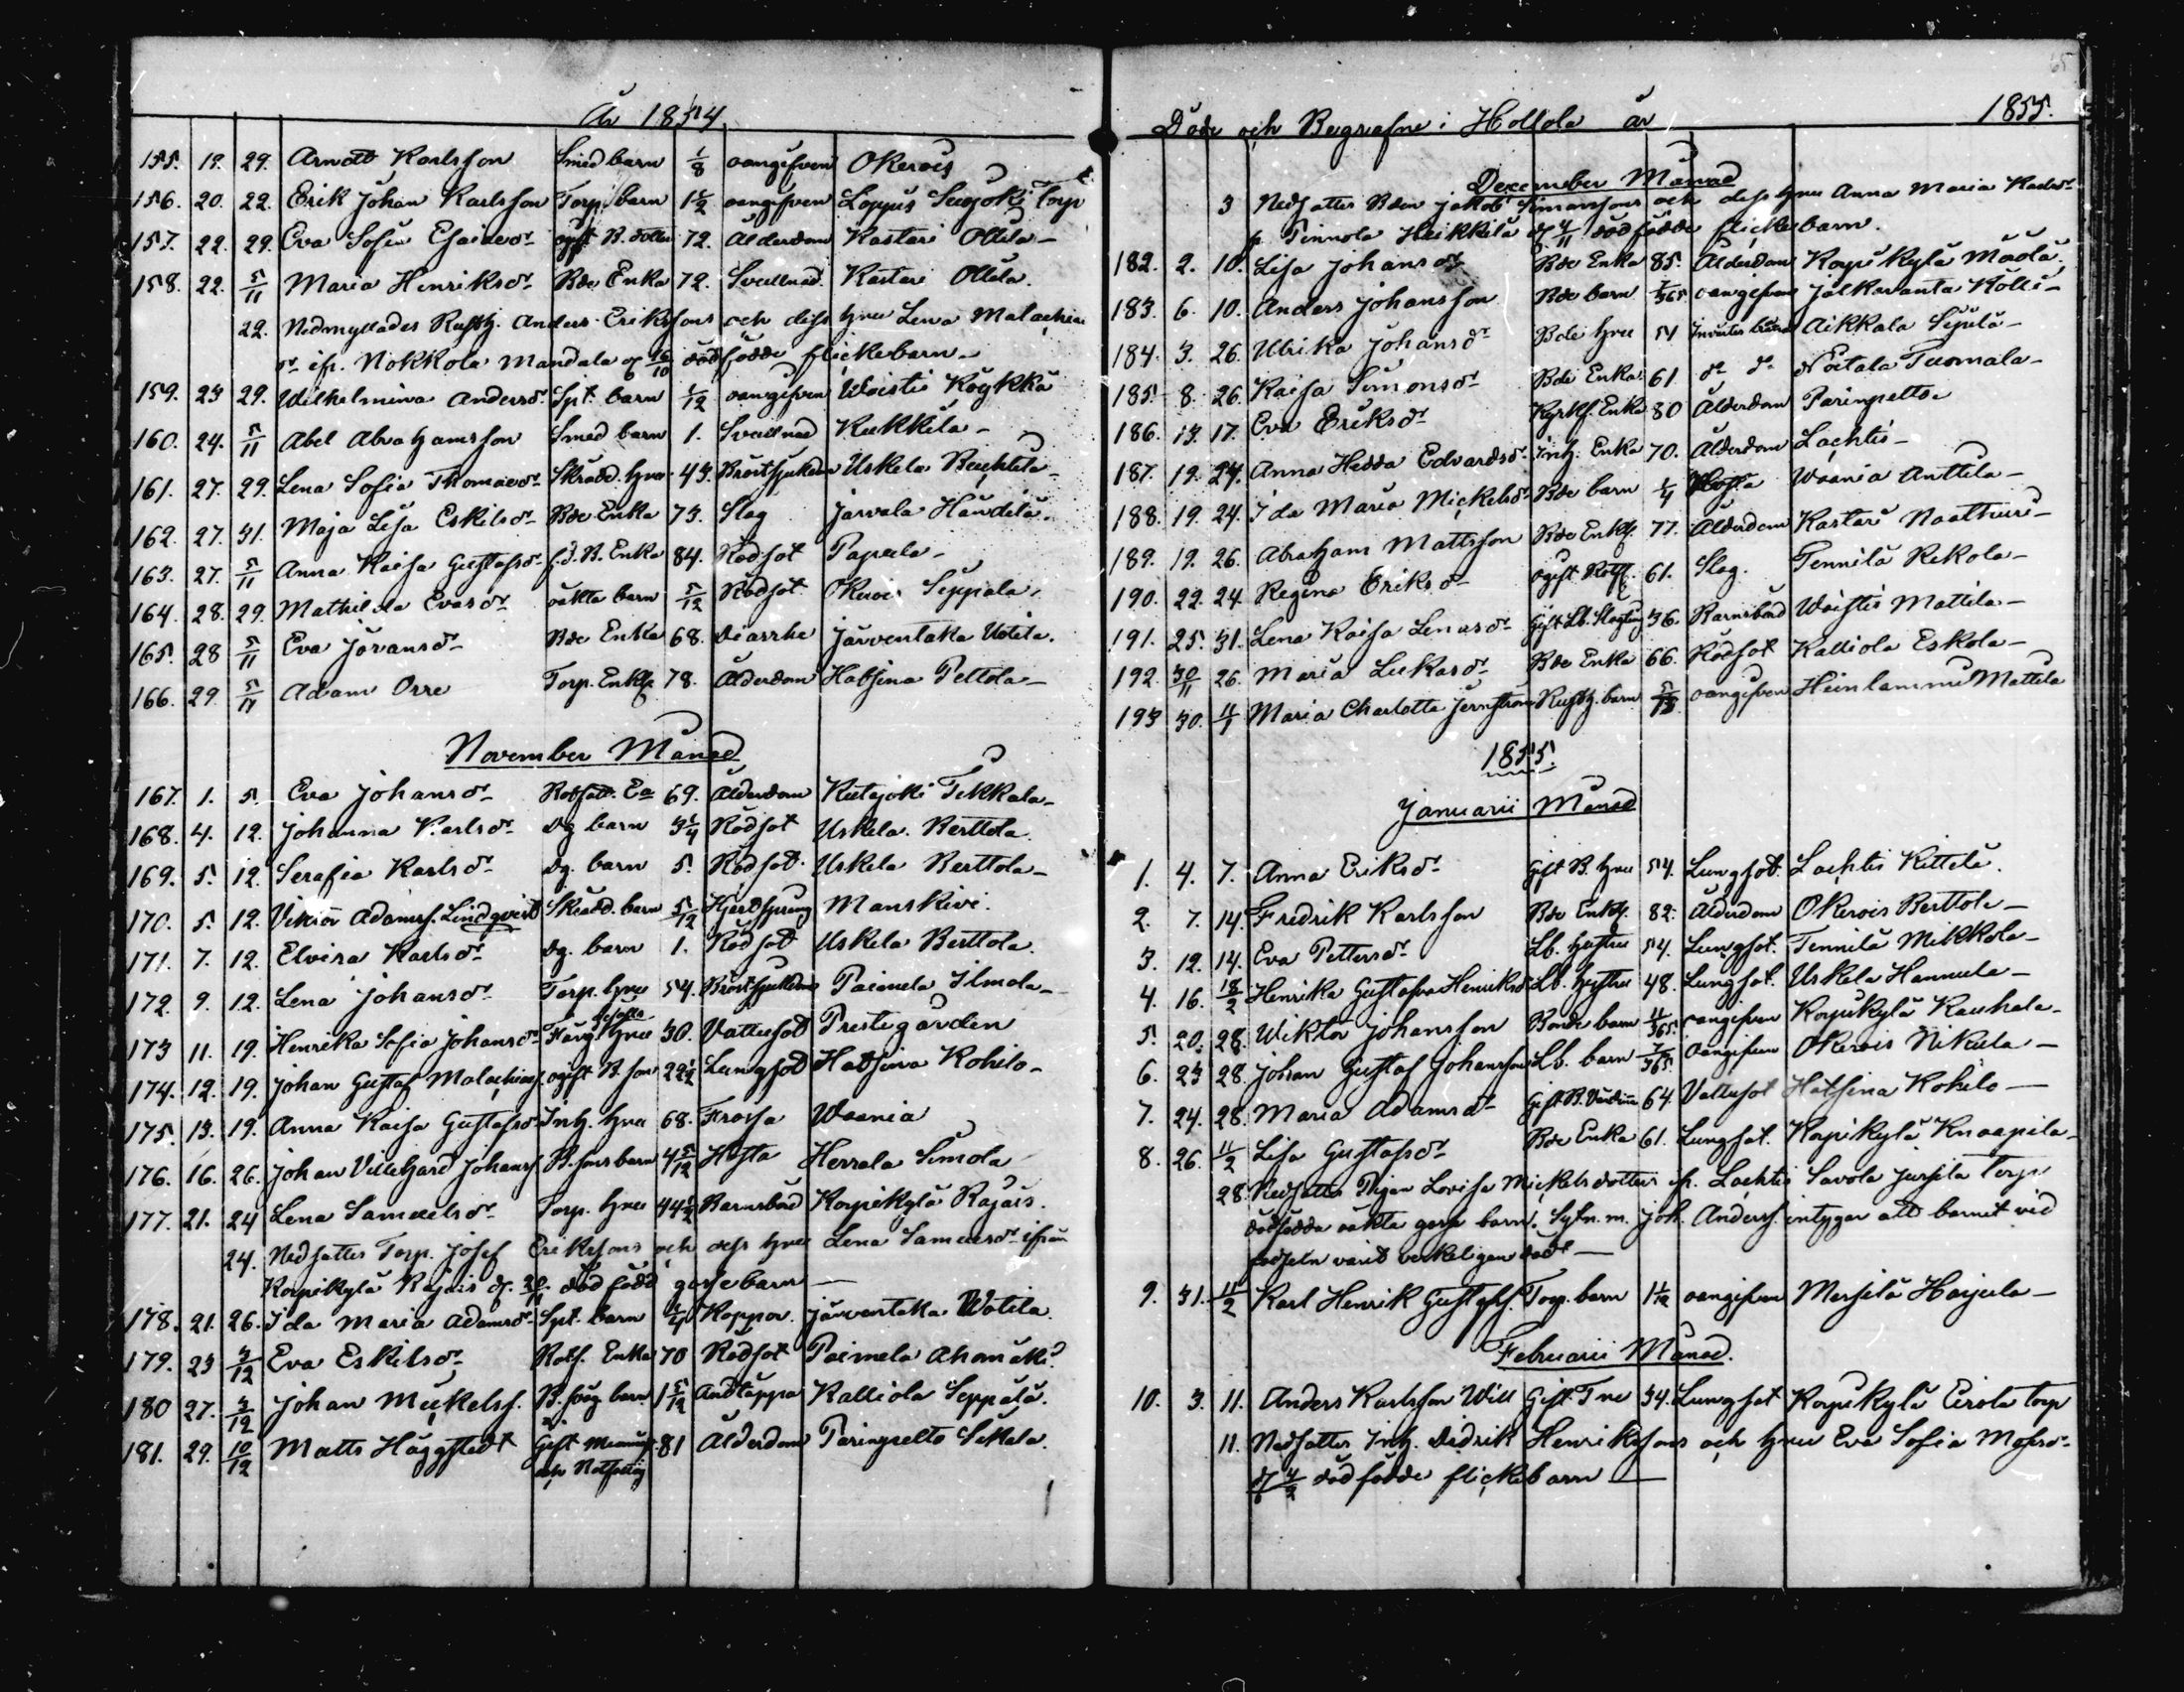 År 1854
155. 19. 29. Arnold Karlsson Smed barn 1/8 oangifven Okerois
156. 20. 22. Erik Johan Karlsson Torp. barn 1 1/2 oangifven Torp
157. 22. 29. Eva Sofia Esaiedr ogift B. dotter 72. Ålderdom Kastari Ollila
158. 22. 5/11 Maria Henriksdr Bde Enka 72. Svullnad. Kastari Ollila.
22. Nedmyllades Rusth. Anders Erikssons och dess hru Lena Malachiae
dr ifr. Nokkola Mandala df 16/10 dödfödde flickebarn
159. 23 29. Wilhelmina Andersdr Spt. barn 1/12 oangifven Woistis Köykkä
160. 24. 5/11 Abel Abrahamsson Smed barn 1. Svullnad Kukkila
161. 27. 29. Lena Sofia Thomaedr Skrädd. hru 43. Bröstsjukdom Uskela
162. 27. 31. Maja Lisa Eskilsdr Bde Enka 73. Slag Jarvala Händelä.
163. 27. 5/11 Anna Kaisa Gustafsdr f.d. B. Enka 84. Rödsot Papula
164. 28. 29. Mathilda Evasdr oäkta barn 5/12 Rödsot Okerois Seppala.
165. 28 5/11 Eva Jöransdr Bde Enka 68. Diarrhe Järventaka Uotila.
166. 29. 5/11 Adam Orre Torp. Enkl. 78. Ålderdom Hatsina Pettola
November Månad
167. 1. 5. Eva Johansdr Rotfatt. Ea 69. Ålderdom Kutajoki Tekkala
168. 4. 12. Johanna Karlsdr Dg barn 3 1/4 Rödsot Uskela. Berttola.
169. 5. 12. Serafia Karlsdr Dg. barn 5. Rödsot. Uskela Berttola
170. 5. 12. Viktor Adamss. Lindqvist Skrädd. barn 5/12 Hjertsprång Manskivi.
171. 7. 12. Elvira Karlsdr Dg. barn 1. Rödsot Uskela Berttola.
172. 9. 12. Lena Johansdr Torp. hru 54. Bröstsjukdom Paimela Ilmola
173 11. 19. Henrika Sofia Johansdr hru 30. Vattusot Prestegården
174. 12. 19. Johan Gustaf Malachiass. ogift B. son 22 1/2 Lungsot Hatsina Kohilo
175. 13. 19. Anna Kaisa Gustafsdr Inh. hru 68. Frossa Waania
176. 16. 26. Johan Villehard Johanss. B. sons barn 4 5/12 Hosta Herrala Simola
177. 21. 24 Lena Samuelsdr Torp. hru 44 1/2 Barnsbörd Korpikylä Rajais.
24. Nedsattes Torp. Josef Erikssons och dess hru Lena Samuelsdr ifrån
Korpikylä Rajais df. 20/11 dödfödd gossebarn
178. 21. 26. Ida Maria Adamsdr Spt. barn 1/4 Koppor. Järventaka Wotila.
179. 23 3/12 Eva Eskilsdr Rotf. Enka 70 Rödsot Paimela Ahomäki
180 27. 3/12 Johan Mickelss. barn 1 5/12 Andtäppa Kalliola Seppälä.
181. 29. 10/12 Matts Häggstedt Gift 81 Ålderdom Paringselto Sikala.
Döde och Begrafne i Hollola år 1855.
December Månad
3 Nedsattes Bden Jakob Simonssons och dess hru Anna Maria Karlsdr
fr. Pinnola Heikkilä df 4/11 dödfödde flickebarn.
182. 2. 10. Lisa Johansdr Bde Enka 85. Ålderdom Korpikylä Maola.
183. 6. 10. Anders Johansson Bde barn 7/365 oangifven Jalkaranta Kölli
184. 3. 26. Ulrika Johansdr Bde hru 51 Aikkala Sipilä
185. 8. 26. Kaisa Simonsdr Bde Enka 61 do do Noitala Tuomala
186. 13. 17. Eva Eriksdr Kyrkf. Enka 80 Ålderdom Paringselto
187. 19. 24. Anna Hedda Edvardsdr Inh. Enka 70. Ålderdom Lachtis
188. 19. 24. Ida Maria Mickelsdr Bde barn 1/4 Hosta Waania Anttila
189. 19. 26. Abraham Mattsson Bde Enkl. 77. Ålderdom Kastari Naathuri
190. 22. 24 Regina Eriksdr ogift 61. Slag. Tennilä Rekola
191. 25. 31. Lena Kaisa Lenasdr Gift 36. Barnsbörd Woistis Mattila
192. 30/11 26. Maria Lukasdr Bde Enka 66. Rödsot Kalliola Eskola
193 30. 11/1 Maria Charlotta Jernström Rusth. barn oangifven Heinlammi Mattila
1855.
Januarii Månad
1. 4. 7. Anna Eriksdr Gift B. hru 54. Lungsot. Lachtis Kittelä.
2. 7. 14. Fredrik Karlsson Bde Enkl. 82. Ålderdom Okerois Berttola
3. 12. 14. Eva Pettersdr Lb. hustru 54. Lungsot. Tennilä Mikkola
4. 16. 18/2 Henrika Gustafva Henriksdr Lb. hustru 48. Lungsot. Uskela Hannula
5. 20. 28. Wiktor Johansson Bonde barn 11/365 oangifven Korpikylä Kauhala
6. 23 28. Johan Gustaf Johansson Lb. barn 7/365. oangifven Okerois Nikula
7. 24. 28. Maria Adamsdr Gift B. Värdinn 64. Vattusot Hatsina Kohilo
8. 26. 11/2 Lisa Gustafsdr Bde Enka 61. Lungsot. Korpikylä Knaapila
28. Nedsattes Pigan Lovisa Mickelsdotters ifr. Lachtis Savola Jussila Torp
dödfödda oäkta gosse barn. Syln. m. Joh. Anderss. intygar att barnet vid
födseln varit verkeligen död
9. 31. 11/2 Karl Henrik Gustafss. Torp. barn 1 1/12 oangifven Mersilä Harjula
Februarii Månad.
10. 3. 11. Anders Karlsson Will Gift 34. Lungsot Korpikylä Eirola torp
11. Nedsattes Inh. Didrik Henrikssons och hru Eva Sofia Mosesdr
df 4/2 dödfödde flickebarn